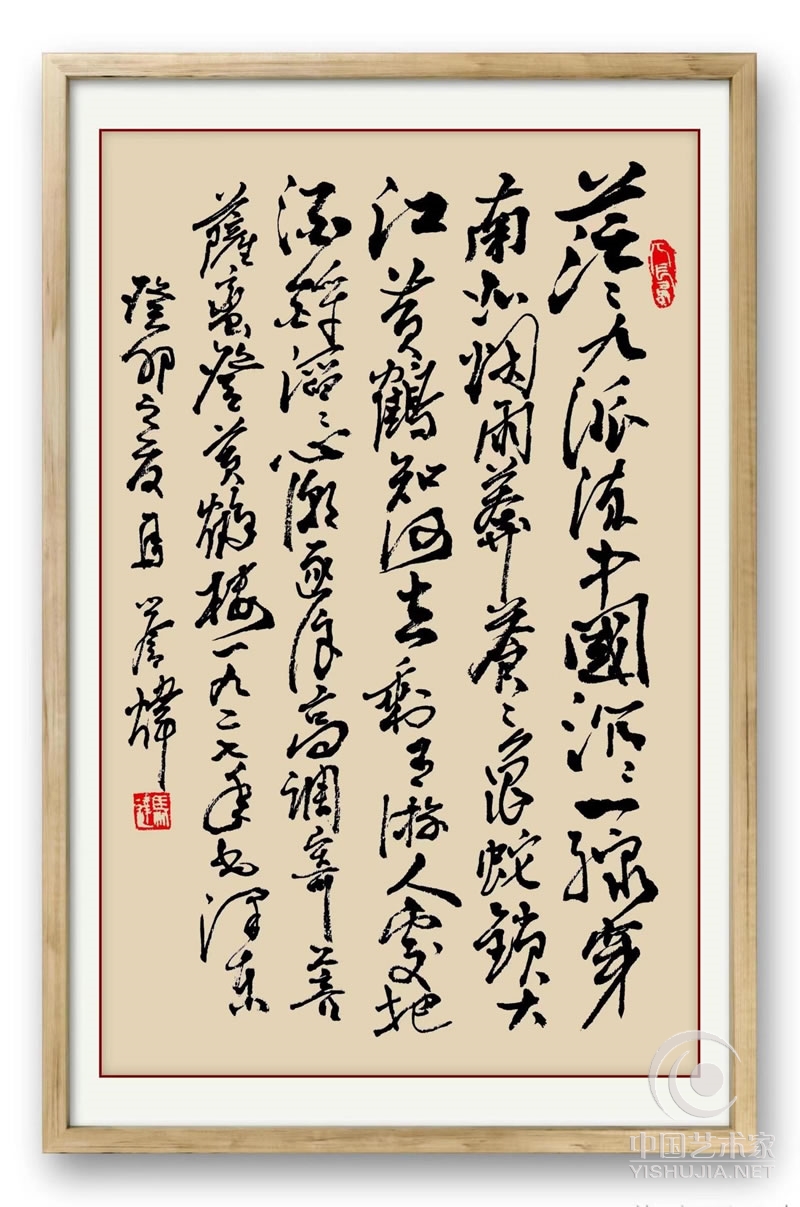 茫〻九派流中國沉〻一線穿
南北烟雨莽蒼〻龜蛇鎖大
江黄鶴知何去剩有游人處把
酒酹滔〻心潮逐浪高調寄菩
薩蠻登黄鶴樓一九二七年毛澤東
癸卯之夏月 煒
中国艺术家
YISHUJIA.NET